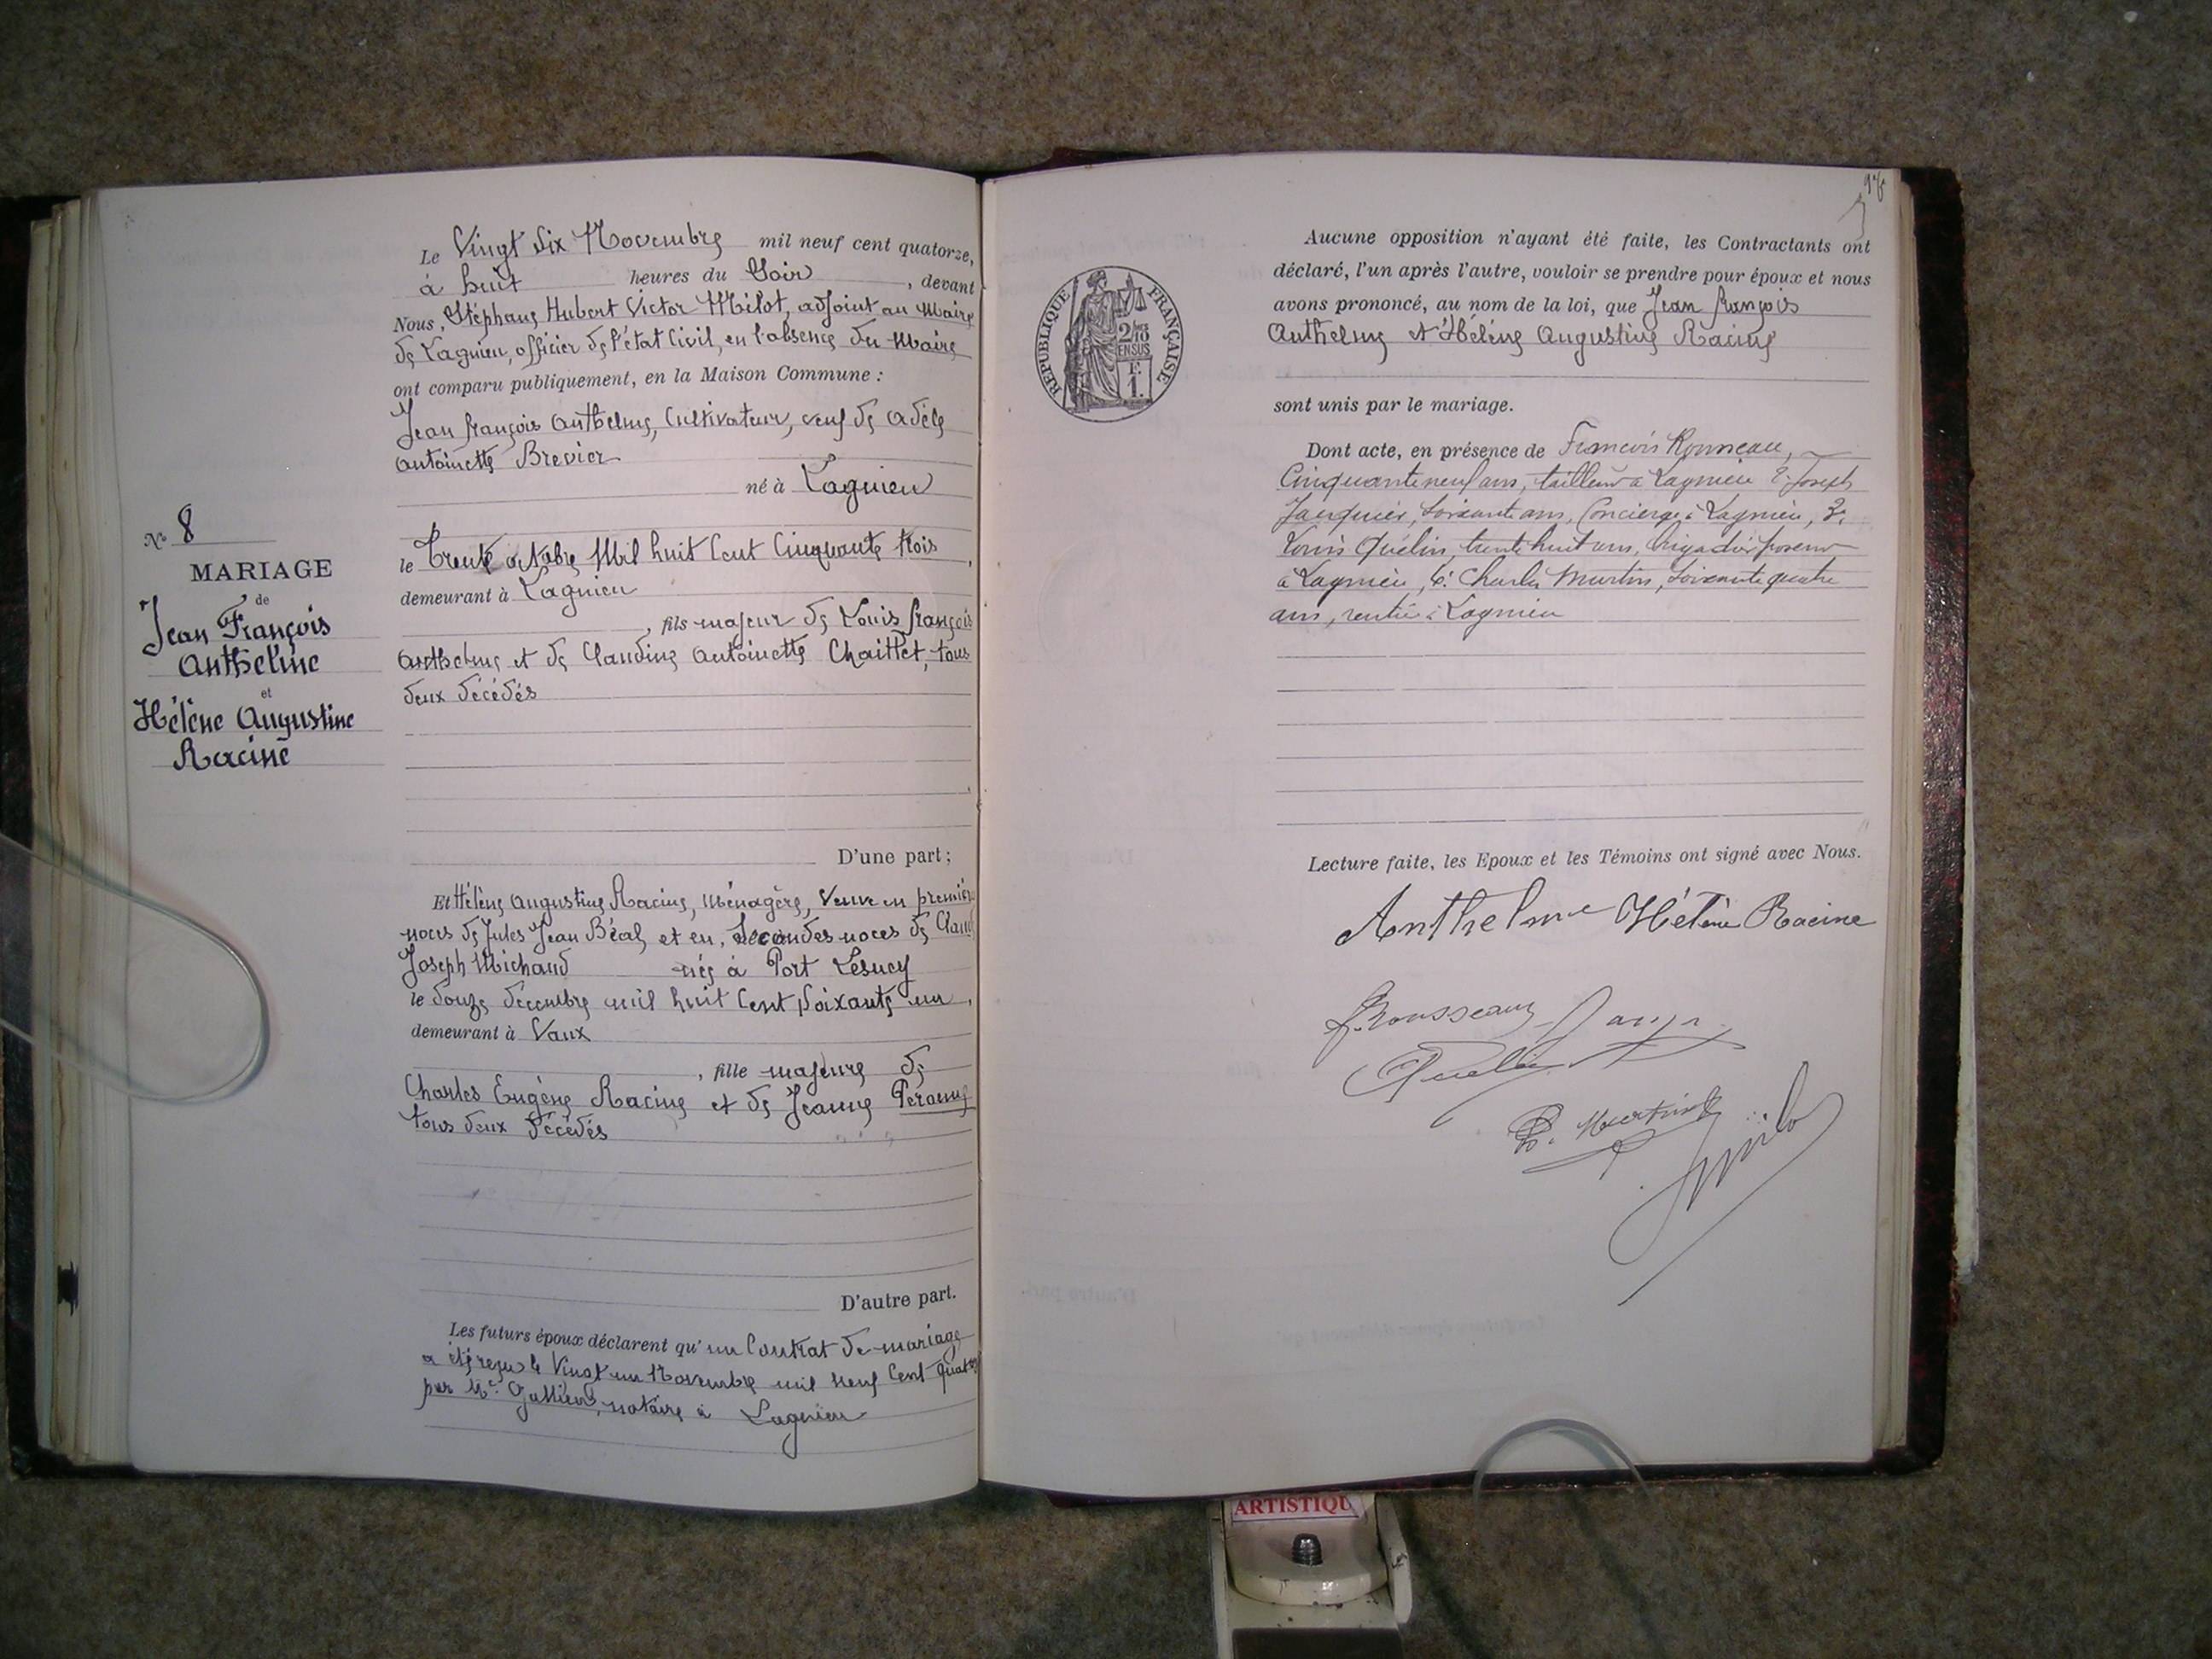 Le Vingt six Novembre mil neuf cent quatorze,
à huit heures du Soir, devant
Nous, Stéphane Hubert Victor Milot, adjoint au Maire
de Lagnieu, officier de l'état Civil, en l'absence du Maire
ont comparu publiquement, en la Maison Commune :
Jean françois Anthelme, Cultivateur, veuf de Adèle
Antoinette Brevier
né à Lagnieu
le Trente octobre Mil huit Cent Cinquante trois,
demeurant à Lagnieu
, fils majeur de Louis françois
Anthelme et de Claudine Antoinette Chaittet, tous
deux décédés
D'une part ;
N° 8
MARIAGE
de
Jean François
Anthelme
et
Hélène Augustine
Racine
Et Hélène Augustine Racine, Ménagère, Veuve en première
noces de Jules Jean Béal, et en Secondes noces de Claude
Joseph Michaud née à Port Lesney
le douze décembre mil huit Cent soixante un,
demeurant à Vaux
, fille majeure de
Charles Eugène Racine et de Jeanne
tous deux décédés
D'autre part.
Les futurs époux déclarent qu'un Contrat de mariage
a été reçu le Vingt un Novembre mil neuf Cent quatorze
par Me notaire à Lagnieu
Aucune opposition n'ayant été faite, les Contractants ont
déclaré, l'un après l'autre, vouloir se prendre pour époux et nous
avons prononcé, au nom de la loi, que Jean françois
Anthelme et Hélène Augustine Racine
sont unis par le mariage.
RÉPUBLIQUE FRANÇAISE
2/10
EN SUS
F.
1.
Dont acte, en présence de François
Cinquante neuf ans, tailleur à Lagnieu 2° Joseph
soixante ans, Concierge à Lagnieu, 3°
Louis Quélin, trente huit ans, brigadier poseur
à Lagnieu, 4° Charles Martin, soixante quatre
ans, rentier à Lagnieu
Lecture faite, les Epoux et les Témoins ont signé avec Nous.
Anthelme Hélène Racine
f. Rousseau
Quelin
Ch. Martin
ARTISTIQU